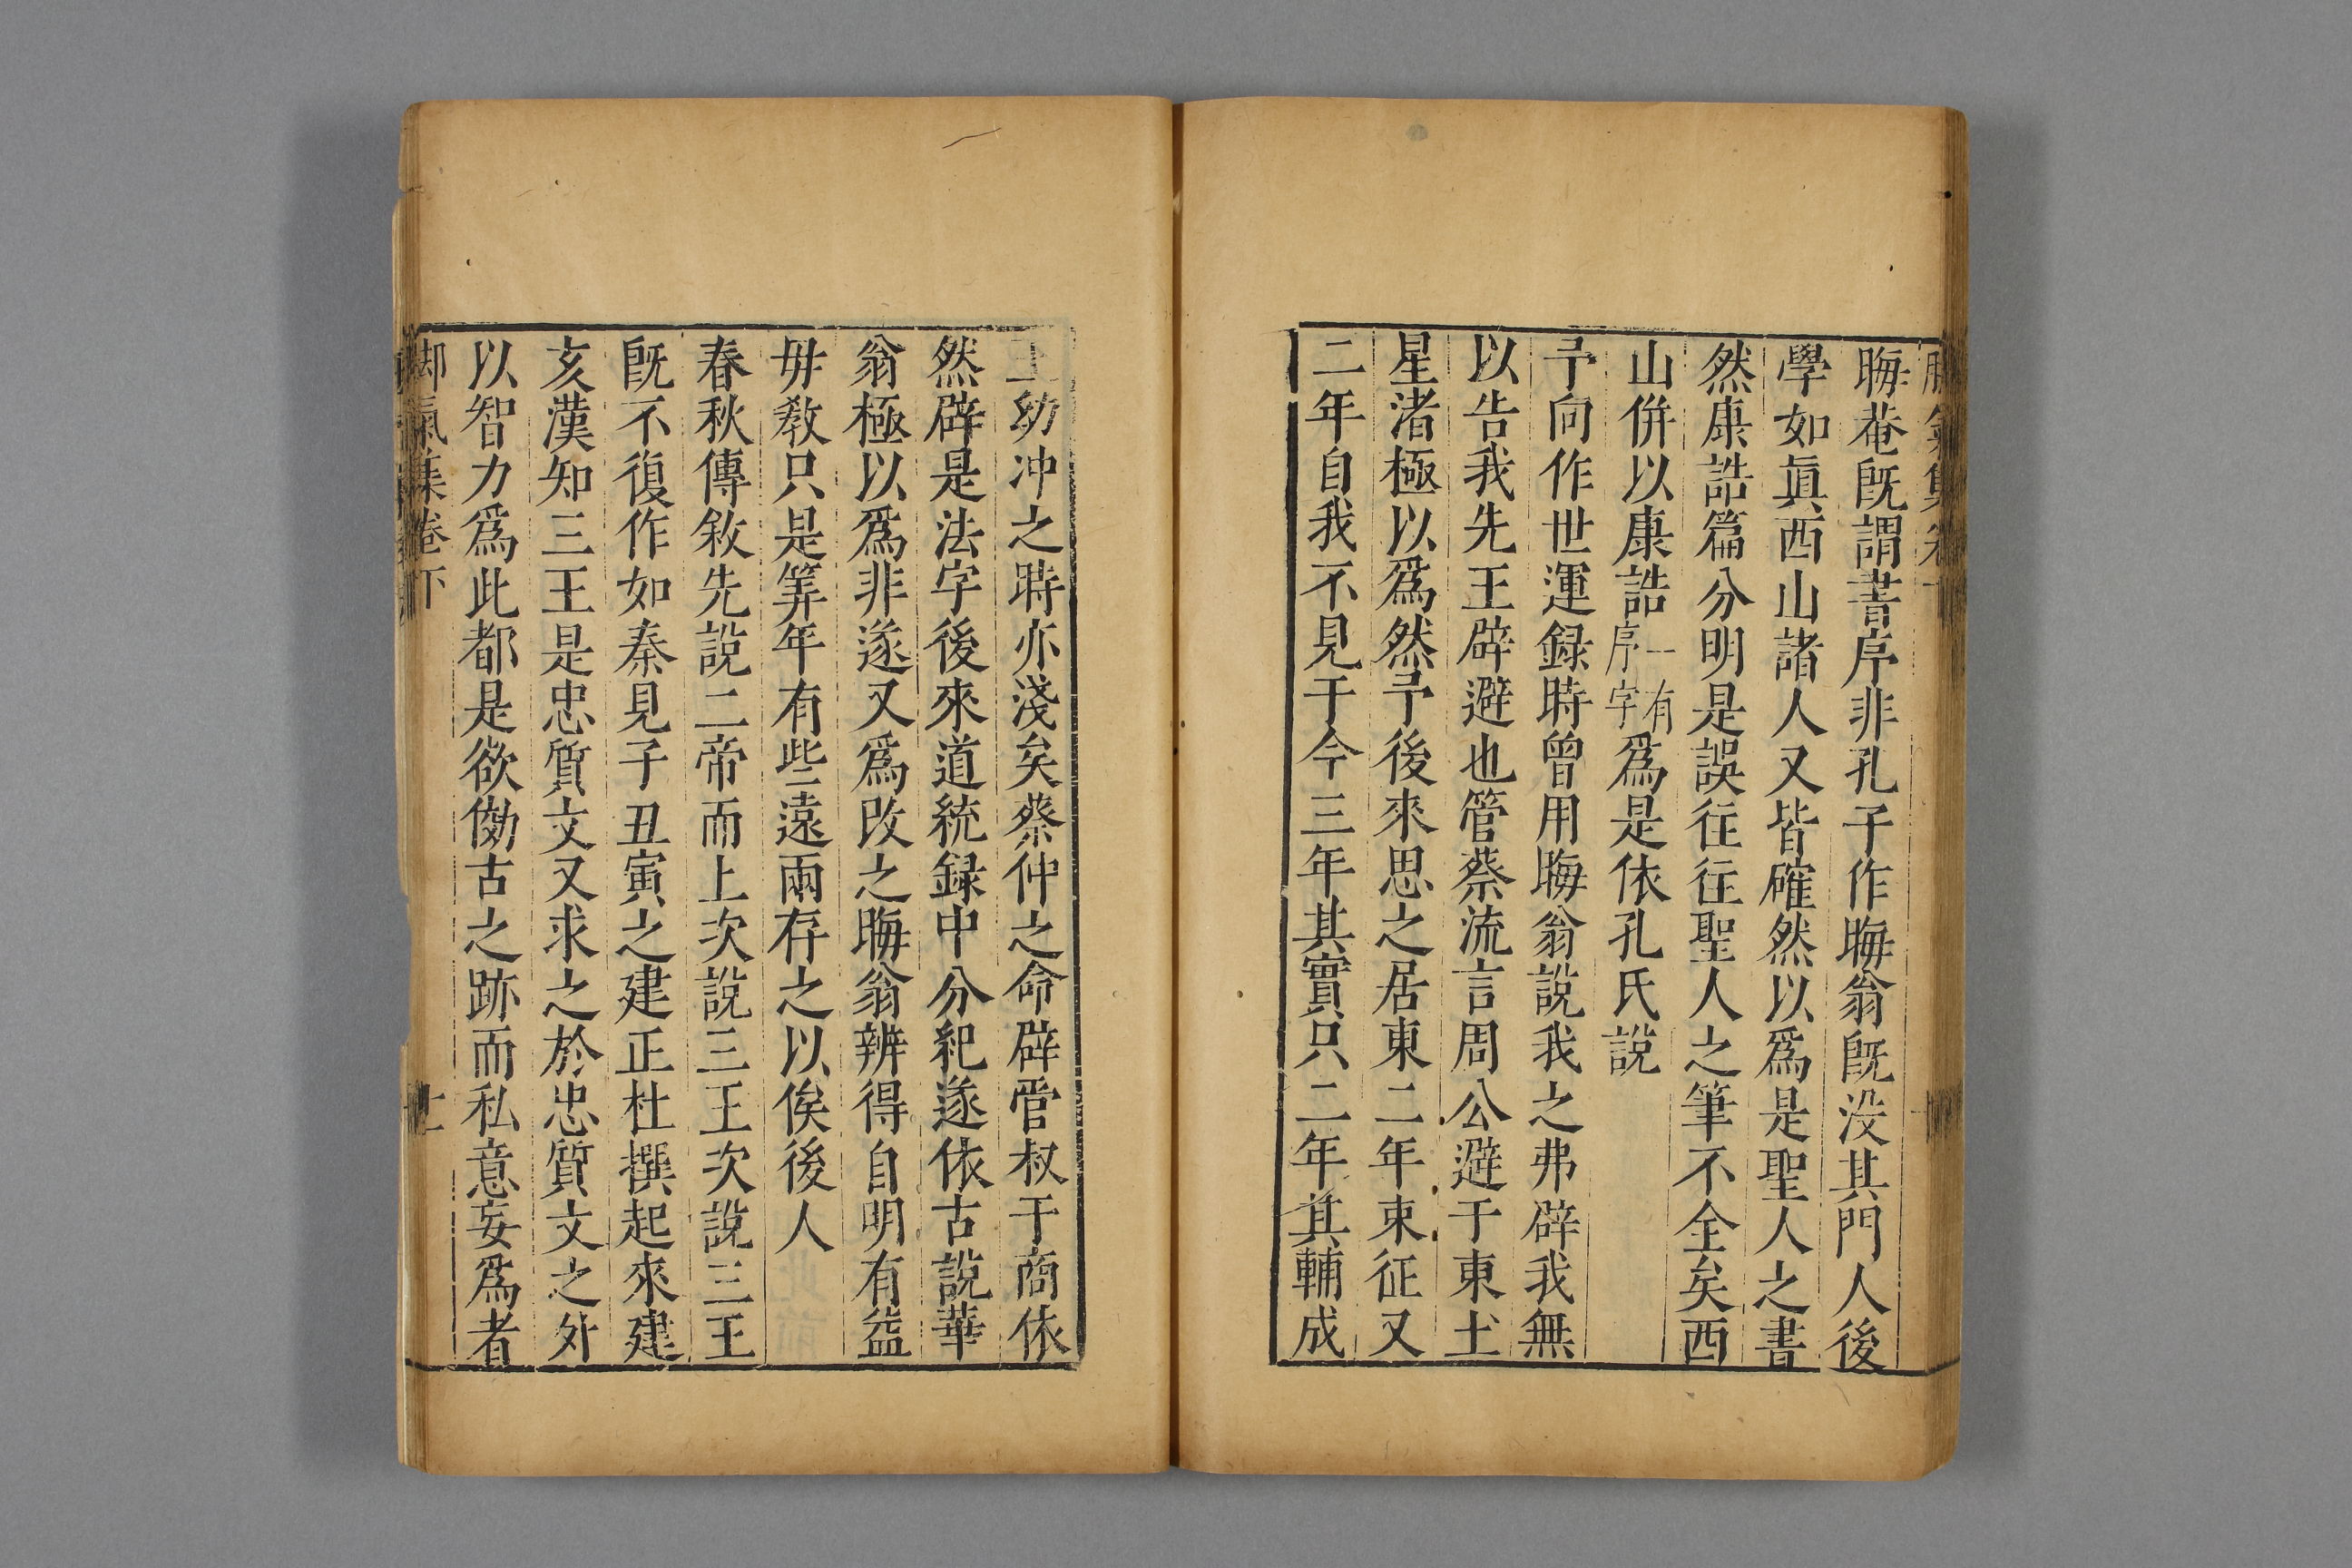 晦菴旣謂書序非孔子作晦翁旣没其門人後
學如眞西山諸人又皆確然以爲是聖人之書
然康誥篇分明是誤徃徃聖人之筆不全矣西
山併以康誥一有序字爲是依孔氏說
予向作世運録時曾用晦翁說我之弗辟我無
以告我先王辟避也管蔡流言周公避于東土
星渚極以爲然予後來思之居東二年東征又
二年自我不見于今三年其實只二年其輔成
王幼冲之時亦淺矣蔡仲之命辟管叔于商依
然辟是法字後來道統録中分紀遂依古說華
翁極以爲非遂又爲改之晦翁辨得自明有益
毋敎只是筭年有些遠兩存之以俟後人
春秋傳敘先說二帝而上次說三王次說三王
旣不復作如秦見子丑寅之建正杜撰起來建
亥漢知三王是忠質文又求之於忠質文之外
以智力爲此都是欲傚古之跡而私意妄爲者
脚氣集卷下